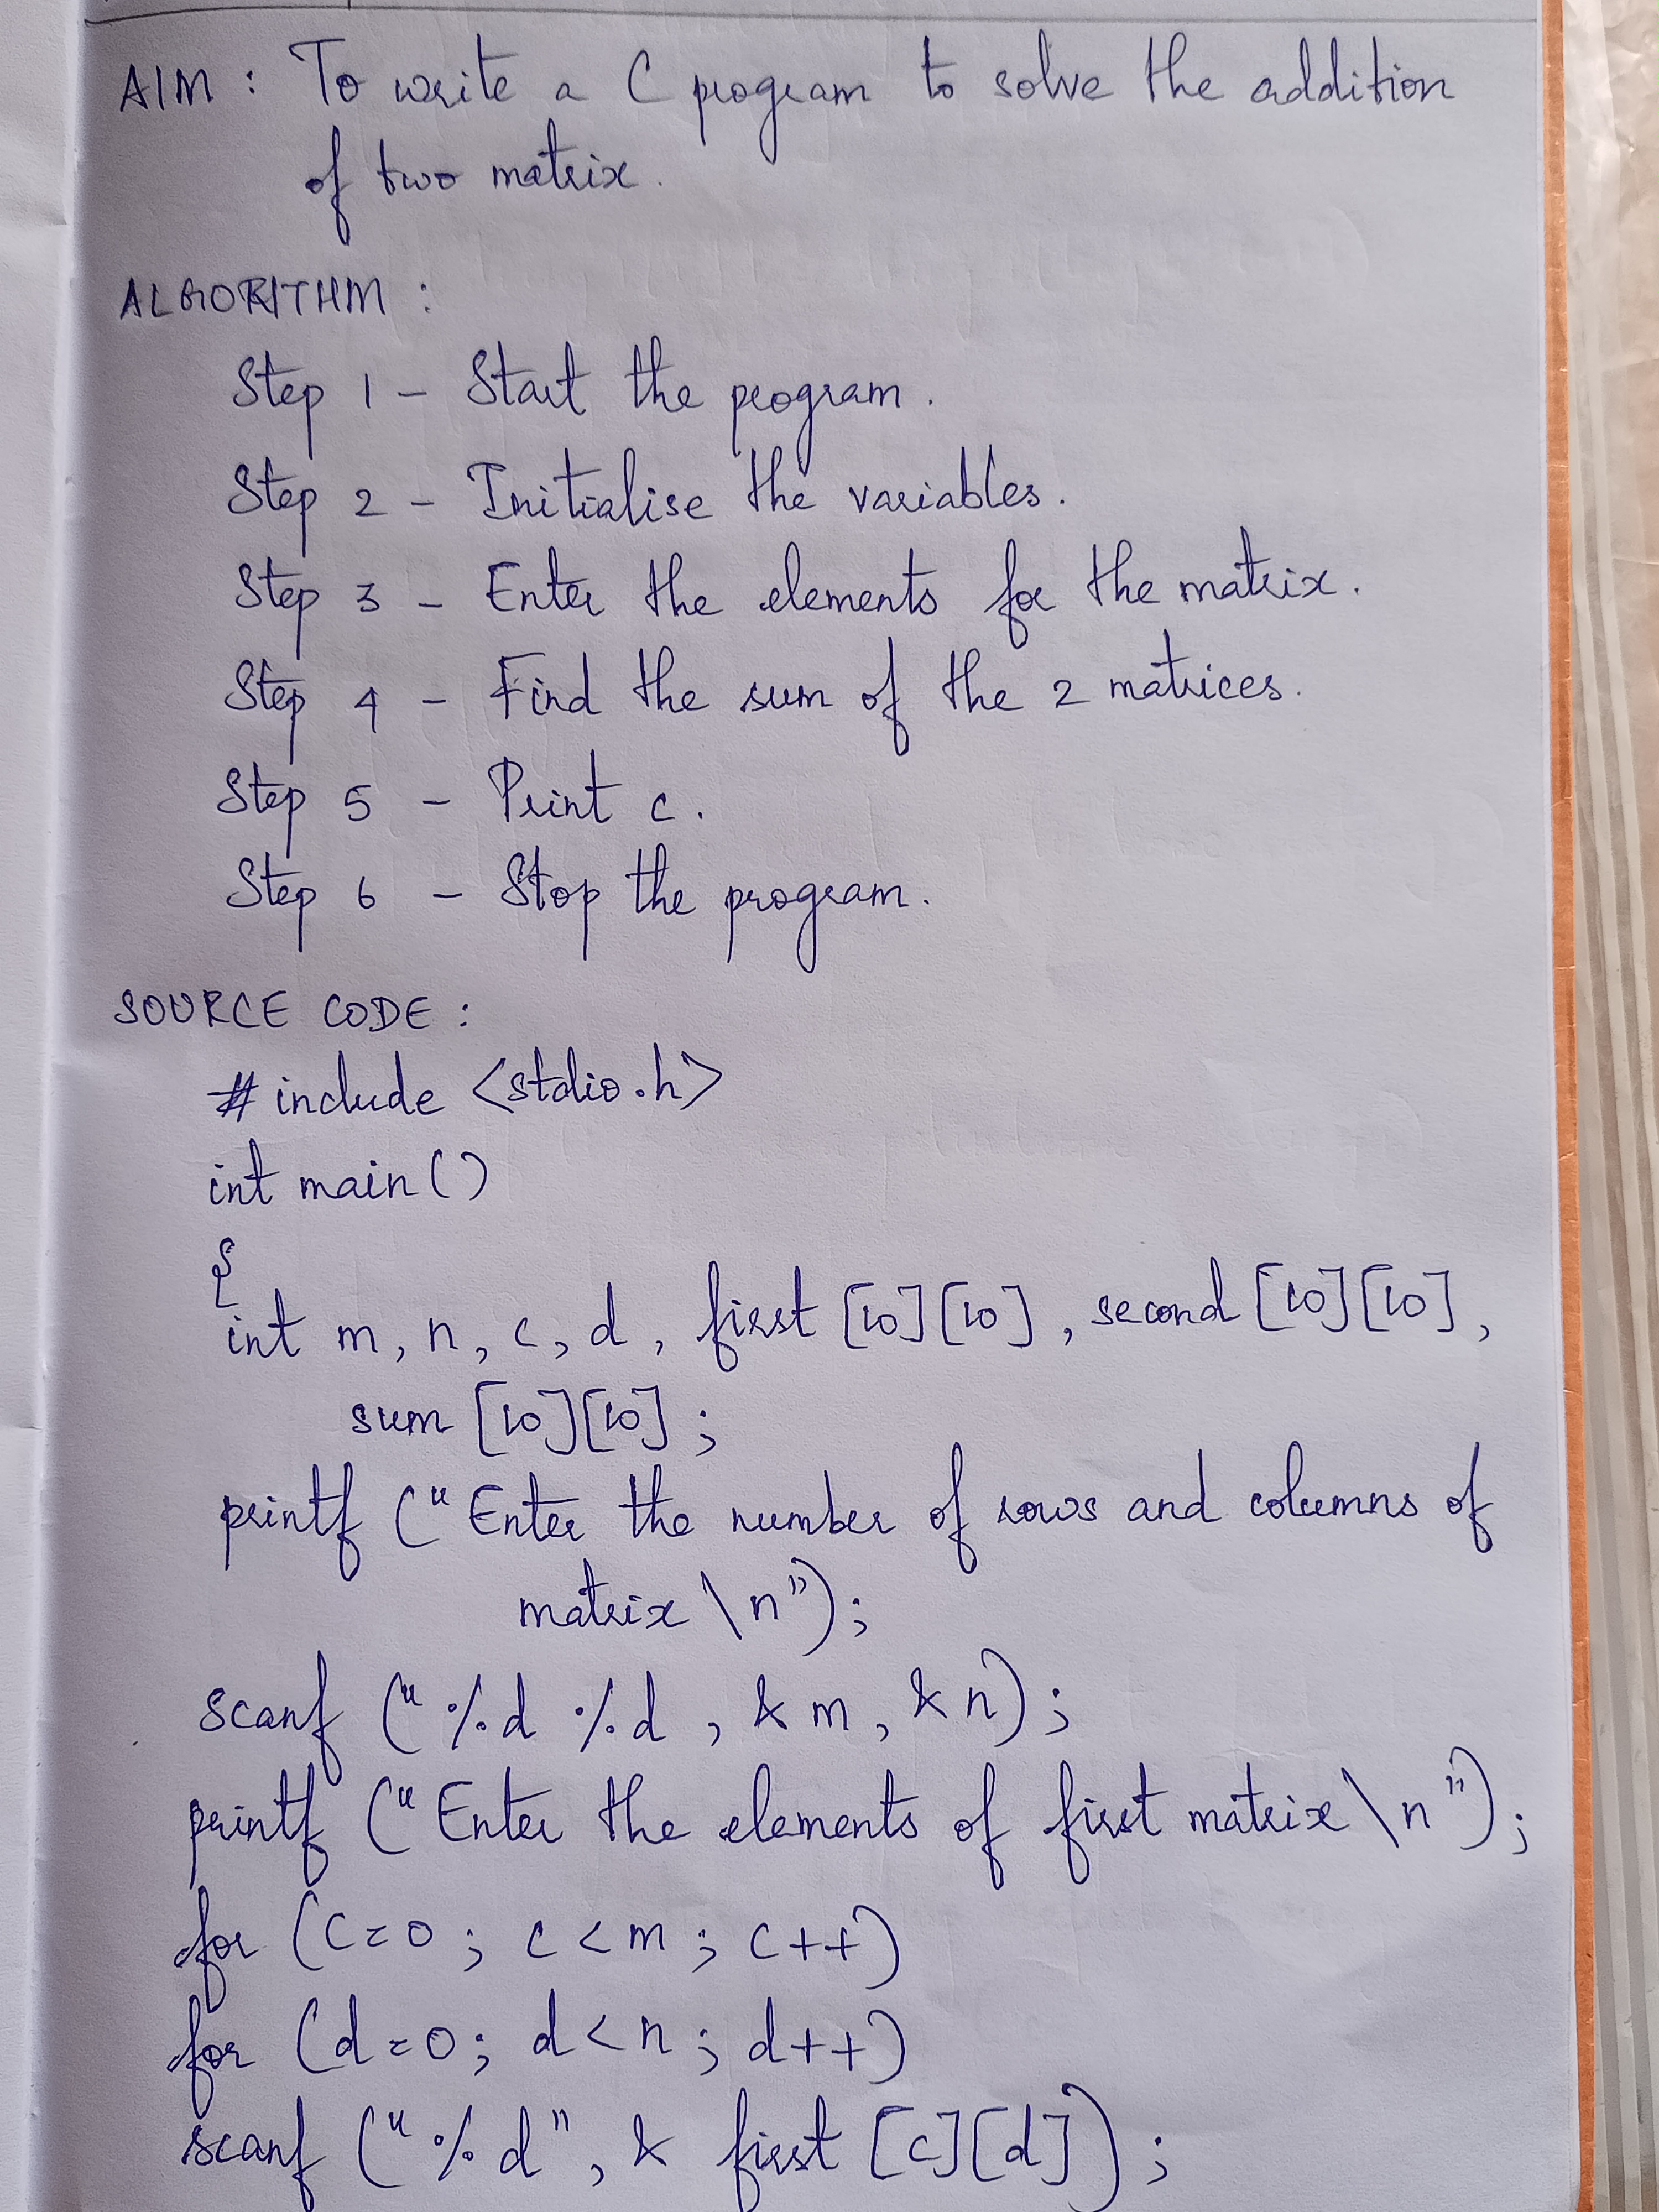 AIM : To write a C program to solve the addition
of two matrix.
ALGORITHM :
Step 1 - Start the program.
Step 2 - Initialise the variables.
Step 3 - Enter the elements for the matrix.
Step 4 - Find the sum of the 2 matrices.
Step 5 - Print c.
Step 6 - Stop the program.
SOURCE CODE :
# include <stdio.h>
int main ()
{
int m, n, c, d, first [10][10], second [10][10],
sum [10][10] ;
printf (“ Enter the number of rows and columns of
matrix \n”);
scanf (“ %d %d , & m, & n) ;
printf (“ Enter the elements of first matrix \n”) ;
for (c=0 ; c<m ; c++)
for (d=0; d<n ; d++)
scanf (“ %d”, & first [c][d]) ;